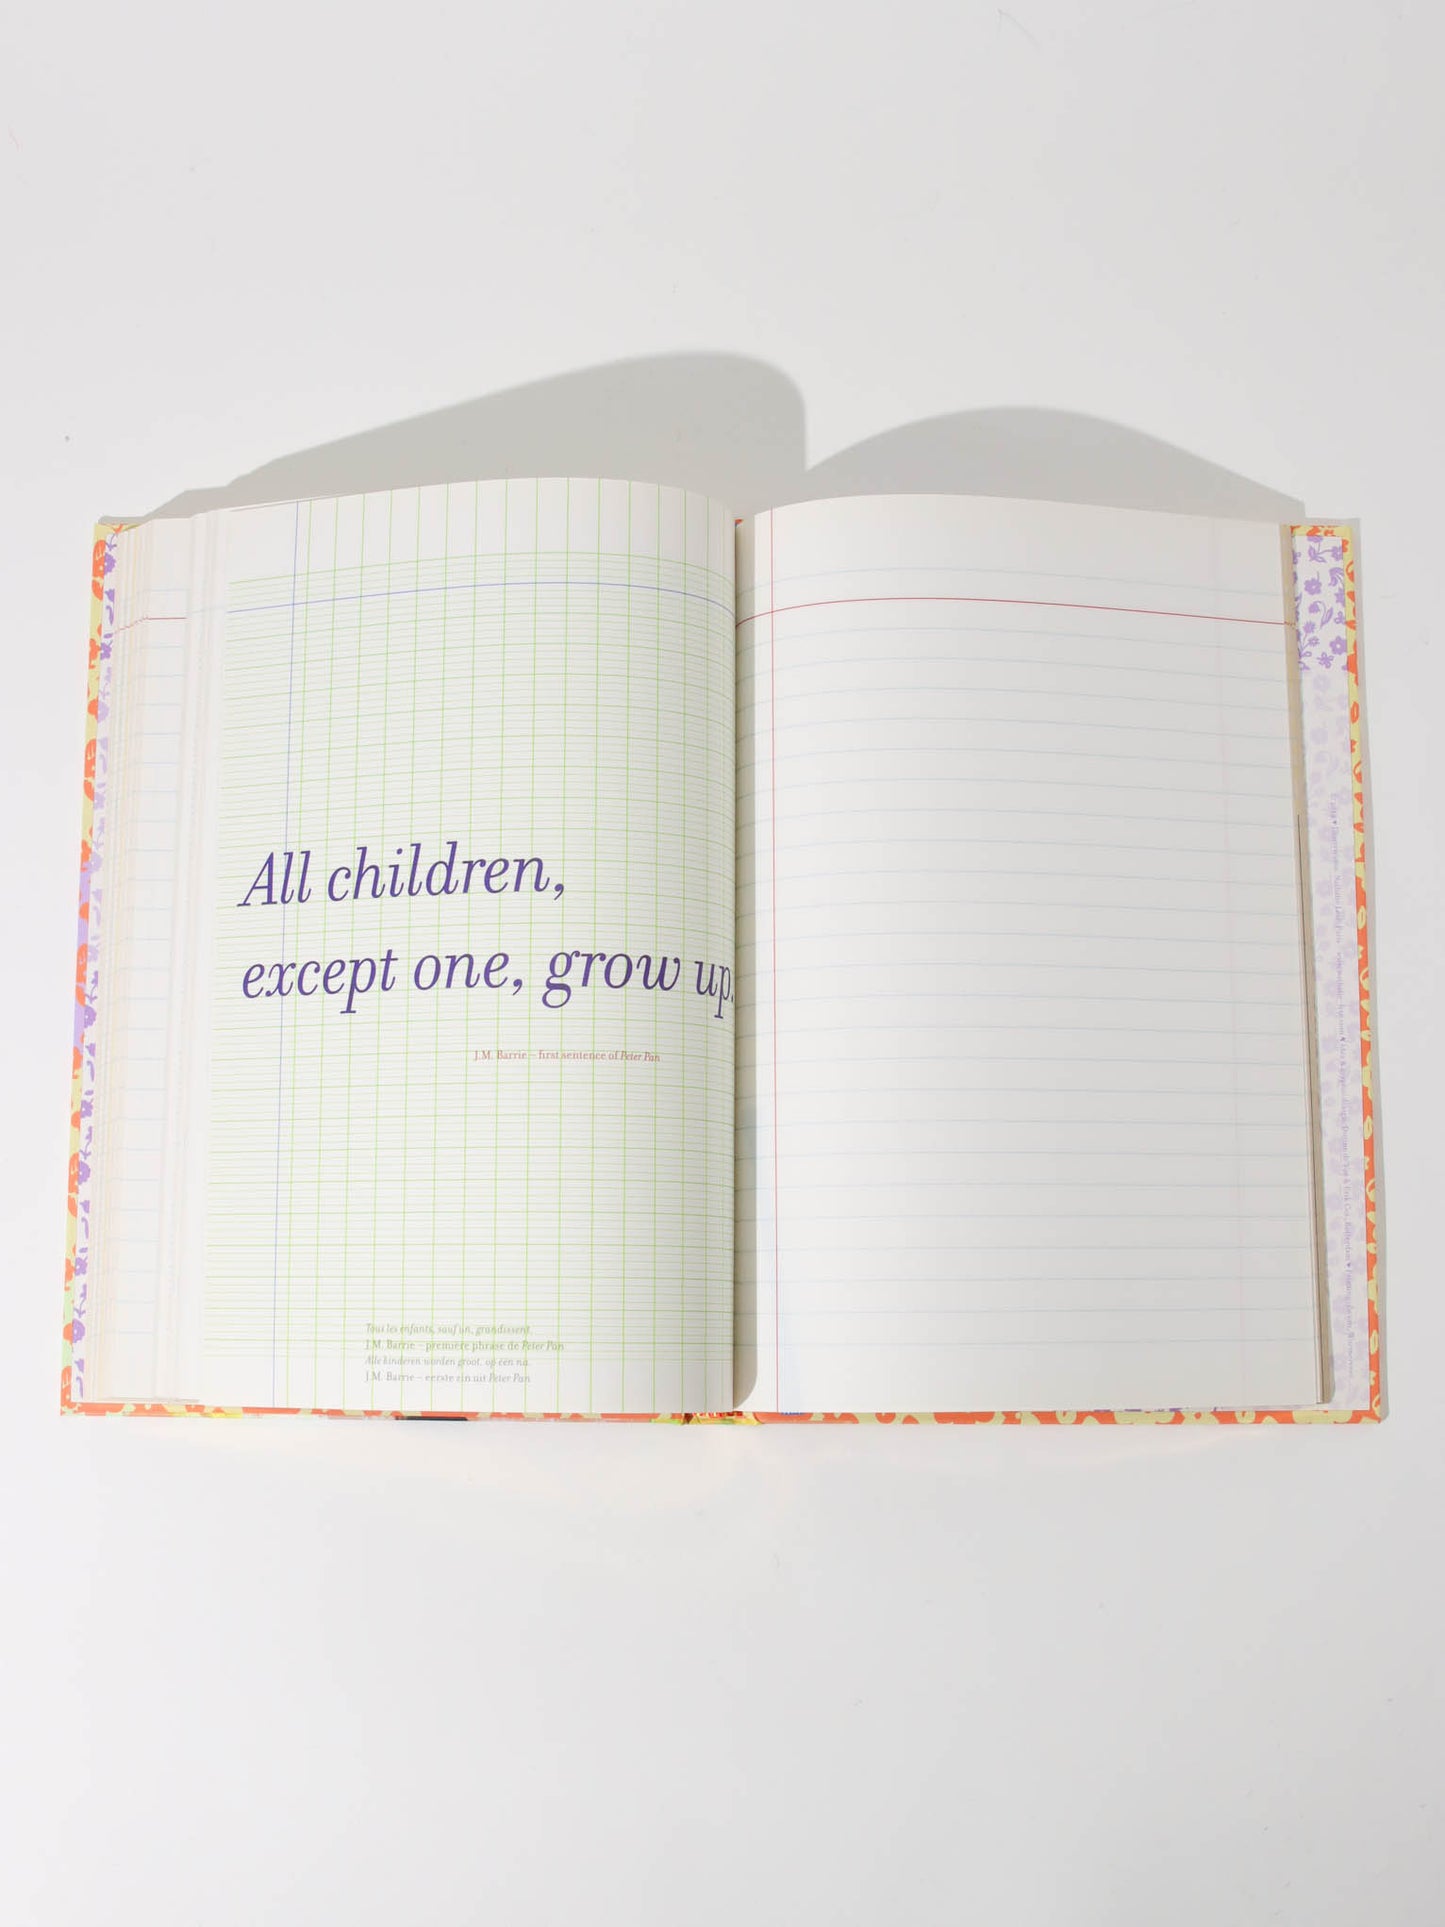 All children,
except one, grow up.
J.M. Barrie – first sentence of Peter Pan
Tous les enfants, sauf un, grandissent.
J.M. Barrie – première phrase de Peter Pan
Alle kinderen worden groot, op één na.
J.M. Barrie – eerste zin uit Peter Pan